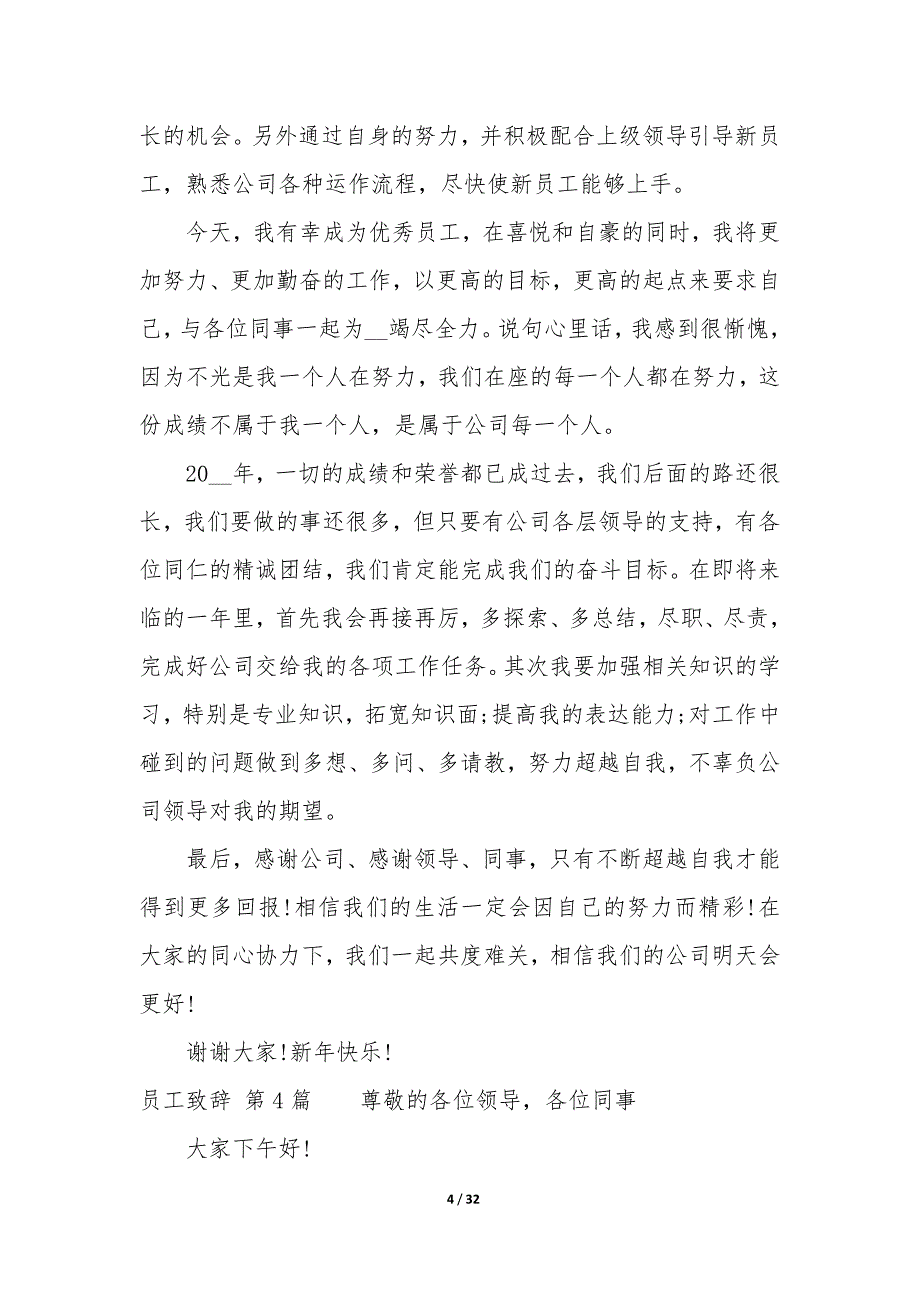 长的机会。另外通过自身的努力，并积极配合上级领导引导新员
工，熟悉公司各种运作流程，尽快使新员工能够上手。
今天，我有幸成为优秀员工，在喜悦和自豪的同时，我将更
加努力、更加勤奋的工作，以更高的目标，更高的起点来要求自
己，与各位同事一起为__竭尽全力。说句心里话，我感到很惭愧，
因为不光是我一个人在努力，我们在座的每一个人都在努力，这
份成绩不属于我一个人，是属于公司每一个人。
20__年，一切的成绩和荣誉都已成过去，我们后面的路还很
长，我们要做的事还很多，但只要有公司各层领导的支持，有各
位同仁的精诚团结，我们肯定能完成我们的奋斗目标。在即将来
临的一年里，首先我会再接再厉，多探索、多总结，尽职、尽责，
完成好公司交给我的各项工作任务。其次我要加强相关知识的学
习，特别是专业知识，拓宽知识面;提高我的表达能力;对工作中
碰到的问题做到多想、多问、多请教，努力超越自我，不辜负公
司领导对我的期望。
最后，感谢公司、感谢领导、同事，只有不断超越自我才能
得到更多回报!相信我们的生活一定会因自己的努力而精彩!在
大家的同心协力下，我们一起共度难关，相信我们的公司明天会
更好!
谢谢大家!新年快乐!
员工致辞 第 4 篇　　尊敬的各位领导，各位同事
大家下午好!
4 / 32